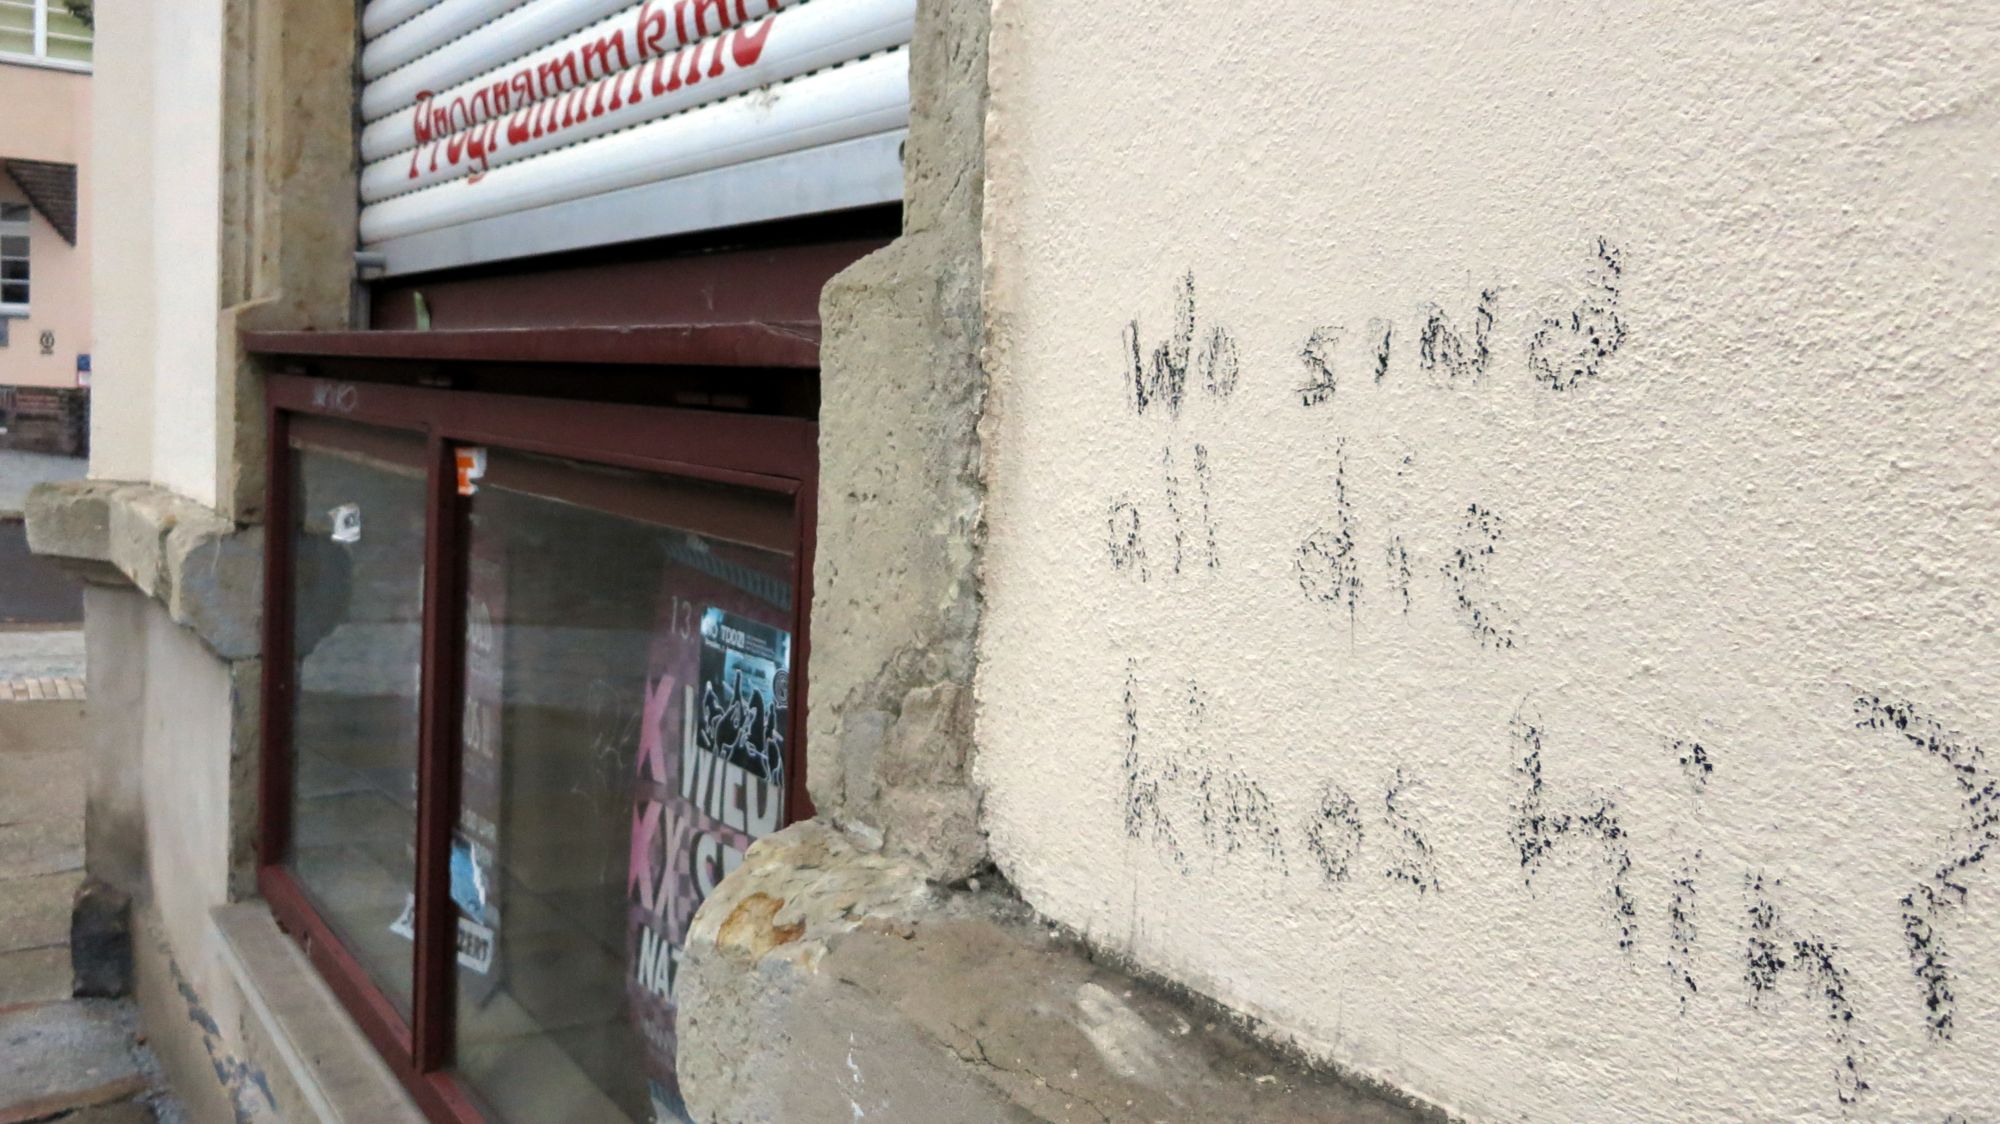 Programmkino
Wo sind
all die
kinos hin?
13
X WIED
XX SE
NAT
ZERT